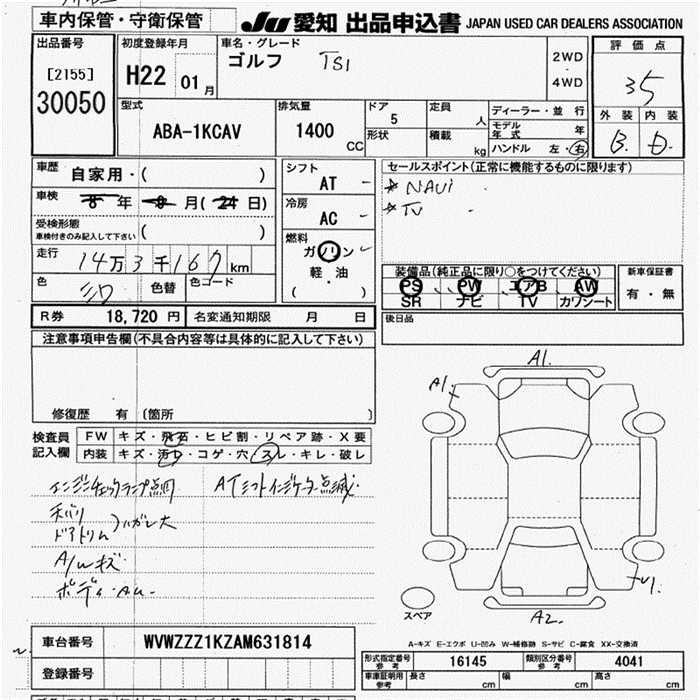 車内保管・守衛保管
JU 愛知 出品申込書 JAPAN USED CAR DEALERS ASSOCIATION
出品番号
[2155]
30050
初度登録年月
H22 01 月
車名・グレード
ゴルフ TSI
2WD
・
4WD
評価点
3.5
外装 内装
B. D.
型式
ABA-1KCAV
排気量
1400 CC
ドア
5
形状
定員
人
積載
kg
ディーラー・並行
モデル年式 年
ハンドル 左・右
車歴
自家用・( )
車検
8 年 8 月(24 日)
受検形態
車検付きのみ記入して下さい ( )
走行
14万3千167km
色
シロ
色替
色コード
シフト
AT -
冷房
AC -
燃料
ガソリン
軽・油
( )
セールスポイント(正常に機能するものに限ります)
NAVI
TV
装備品(純正品に限り○をつけてください)
PS PW エアB AW
SR ナビ TV カワシート
新車保証書
有・無
R券 18,720 円 名変通知期限 月 日
後日品
注意事項申告欄(不具合内容等は具体的に記入して下さい)
修復歴 有 〔箇所 〕
検査員
記入欄
FW キズ・飛石・ヒビ割・リペア跡・X要
内装 キズ・汚れ・コゲ・穴・スレ・キレ・破レ
エンジンチェックランプ点灯 ATシフトインジケーター点滅
天バリ
ドアトリム
ハガレ大
A/Wキズ
ボディ・AU
A1.
A1.
A2.
スペア
A-キズ E-エクボ U-凹み W-補修跡 S-サビ C-腐食 XX-交換済
車台番号 WVWZZZ1KZAM631814
登録番号
形式指定番号
参考
16145
類別区分番号
参考
4041
車庫証明用
参考
長さ cm
幅 cm
高さ cm